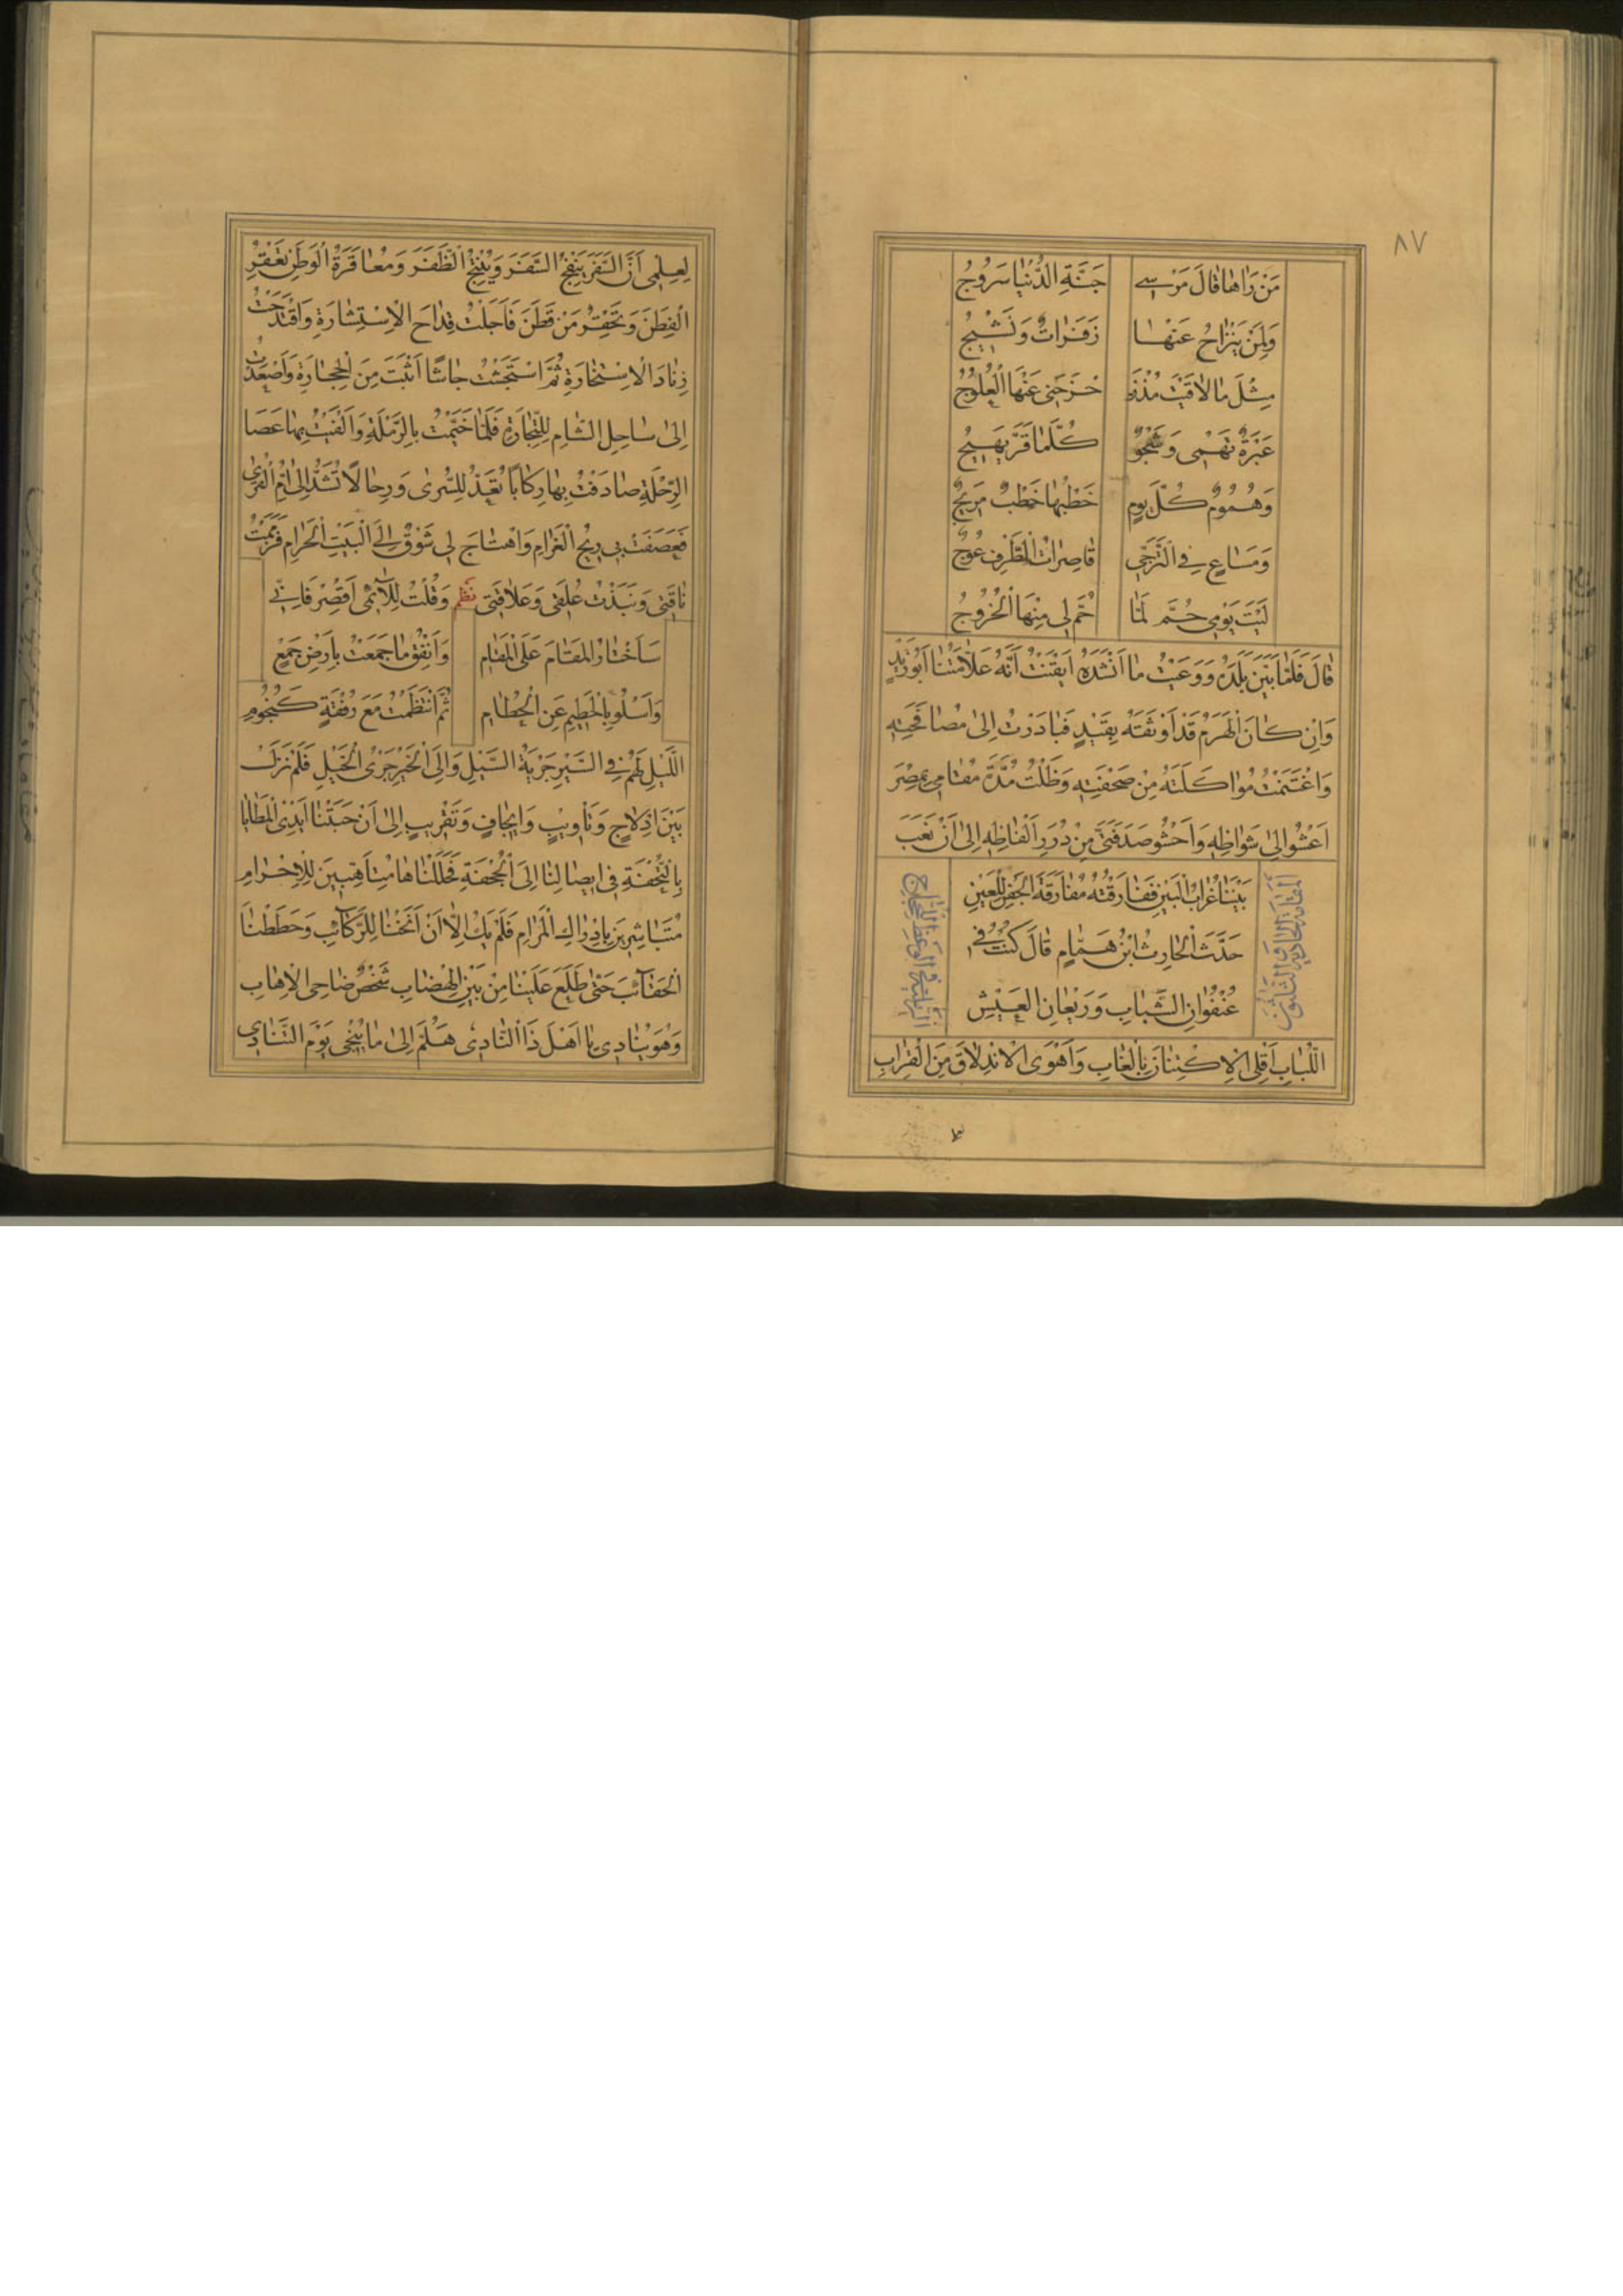 ٨٧
مَنْ رَاٰهٰا قٰالَ مَرْسٰى جَنَّةِ الدُّنْيٰا سَرُوجُ
وَلِمَنْ يَنْزٰاحُ عَنْهٰا زَفَرٰاتٌ وَنَشِيْجُ
مِثْلَ مٰا لاٰقَيْتُ مُذْ زَحْزَحَنِى عَنْهَا الْعُلُوْجُ
عَبْرَةٌ تَهْمِى وَشَجْوٌ كُلَّمٰا قَرَّ يَهِيْجُ
وَهُمُومٌ كُلَّ يَومٍ خَطْبُهٰا خَطْبٌ مَرِيْجٌ
وَمَسٰاعٍ فِى التَّرَجِّى قٰاصِرٰاتُ الْطَّرْفِ عُوْجُ
لَيْتَ يَوْمِى حُمَّ لَمّٰا حُمَّ لِى مِنْهَا الْخُرُوْجُ
قٰالَ فَلَمّٰا بَيَّنَ بَلَدَهُ وَوَعَيْتُ مٰا اَنْشَدَهُ اَيْقَنْتُ اَنَّهُ عَلاّٰمَتُنٰا اَبُوْ زَيْدٍ
وَاِنْ كٰانَ الْهَرَمُ قَدْ اَوْثَقَهُ بِقَيْدٍ فَبٰادَرْتُ اِلىٰ مُصٰافَحَتِهِ
وَاغْتَنَمْتُ مُوٰاكَلَتَهُ مِنْ صَحْفَتِهِ وَظَلْتُ مُدَّةَ مُقٰامِى بِمِصْرَ
اَعْشُوْ اِلىٰ شَوٰاظِهِ وَاَحْشُو صَدَفَتَىَّ مِنْ دُرَرِ اَلْفٰاظِهِ اِلىٰ اَنْ نَعَبَ
بَيْنَنٰا غُرٰابُ الْبَيْنِ فَفٰارَقْتُهُ مُفٰارَقَةَ الْجَفْنِ لِلْعَيْنِ
المقامة الحادية والثلاثون
الرملية فى الوعظ للحجاج
حَدَّثَ الْحٰارِثُ ابْنُ هَمّٰامٍ قٰالَ كُنْتُ فِى
عُنْفُوٰانِ الشَّبٰابِ وَرَيْعٰانِ الْعَيْشِ
اللُّبٰابِ اَقْلِى الْاِكْتِنٰانَ بِالْغٰابِ وَاَهْوَى الْاِنْدِلاٰقَ مِنَ الْقِرٰابِ
لِعِلْمِى اَنَّ السَّفَرَ يَنْفِجُ السُّفَرَ وَيُنْتِجُ الظَّفَرَ وَمُعٰاقَرَةُ الْوَطَنِ تَعْقِرُ
الْفِطَنَ وَتَحْقِرُ مَنْ قَطَنَ فَاَجَلْتُ قِدٰاحَ الْاِسْتِشٰارَةِ وَاقْتَدَحْتُ
زِنٰادَ الْاِسْتِخٰارَةِ ثُمَّ اسْتَجَشْتُ جٰاشًا اَثْبَتَ مِنَ الْحِجٰارَةِ وَاَصْعَدْتُ
اِلىٰ سٰاحِلِ الشّٰامِ لِلتِّجٰارَةِ فَلَمّٰا خَيَّمْتُ بِالرَّمْلَةِ وَاَلْقَيْتُ بِهٰا عَصَا
الرِّحْلَةِ صٰادَفْتُ بِهٰا رِكٰابًا تُعَدُّ لِلسُّرىٰ وَرِحٰالاً تُشَدُّ اِلىٰ اُمِّ الْقُرىٰ
فَعَصَفَتْ بِى رِيْحُ الْغَرٰامِ وَاهْتٰاجَ لِى شَوْقٌ اِلَى الْبَيْتِ الْحَرٰامِ فَزَمَمْتُ
نٰاقَتِى وَنَبَذْتُ عُلَقِى وَعَلاٰقَتِى نظم وَقُلْتُ لِلاّٰئِمِى اَقْصِرْ فَاِنِّى
سَاَخْتٰارُ الْمَقٰامَ عَلَى الْمَقٰامِ وَاَنْفِقُ مٰا جَمَعْتُ بِاَرْضِ جَمْعٍ
وَاَسْلُو بِالْحَطِيْمِ عَنِ الْحُطٰامِ ثُمَّ انْتَظَمْتُ مَعَ رُفْقَةٍ كَنُجُوْمِ
اللَّيْلِ لَهُمْ فِى السَّيْرِ جَرْيَةُ السَّيْلِ وَاِلَى الْخَيْرِ جَرْىُ الْخَيْلِ فَلَمْ نَزَلْ
بَيْنَ اِدْلاٰجٍ وَتَاْوِيْبٍ وَاِيْجٰافٍ وَتَقْرِيْبٍ اِلىٰ اَنْ حَبَتْنٰا اَيْدِى الْمَطٰايٰا
بِالتُّحْفَةِ فِى اِيصٰالِنٰا اِلَى الْجُحْفَةِ فَحَلَلْنٰاهٰا مُتَاَهِّبِيْنَ لِلْاِحْرٰامِ
مُتَبٰاشِرِيْنَ بِاِدْرٰاكِ الْمَرٰامِ فَلَمْ يَكُ اِلاّٰ اَنْ اَنَخْنٰا لِلرَّكٰائِبِ وَحَطَطْنٰا
الْحَقٰائِبَ حَتّٰى طَلَعَ عَلَيْنٰا مِنْ بَيْنِ الْهِضٰابِ شَخْصٌ ضٰاحِى الْاِهٰابِ
وَهُوَ يُنٰادِى يٰا اَهْلَ ذَا النّٰادِى هَلُمَّ اِلىٰ مٰا يُنْجِى يَوْمَ التَّنٰادِى